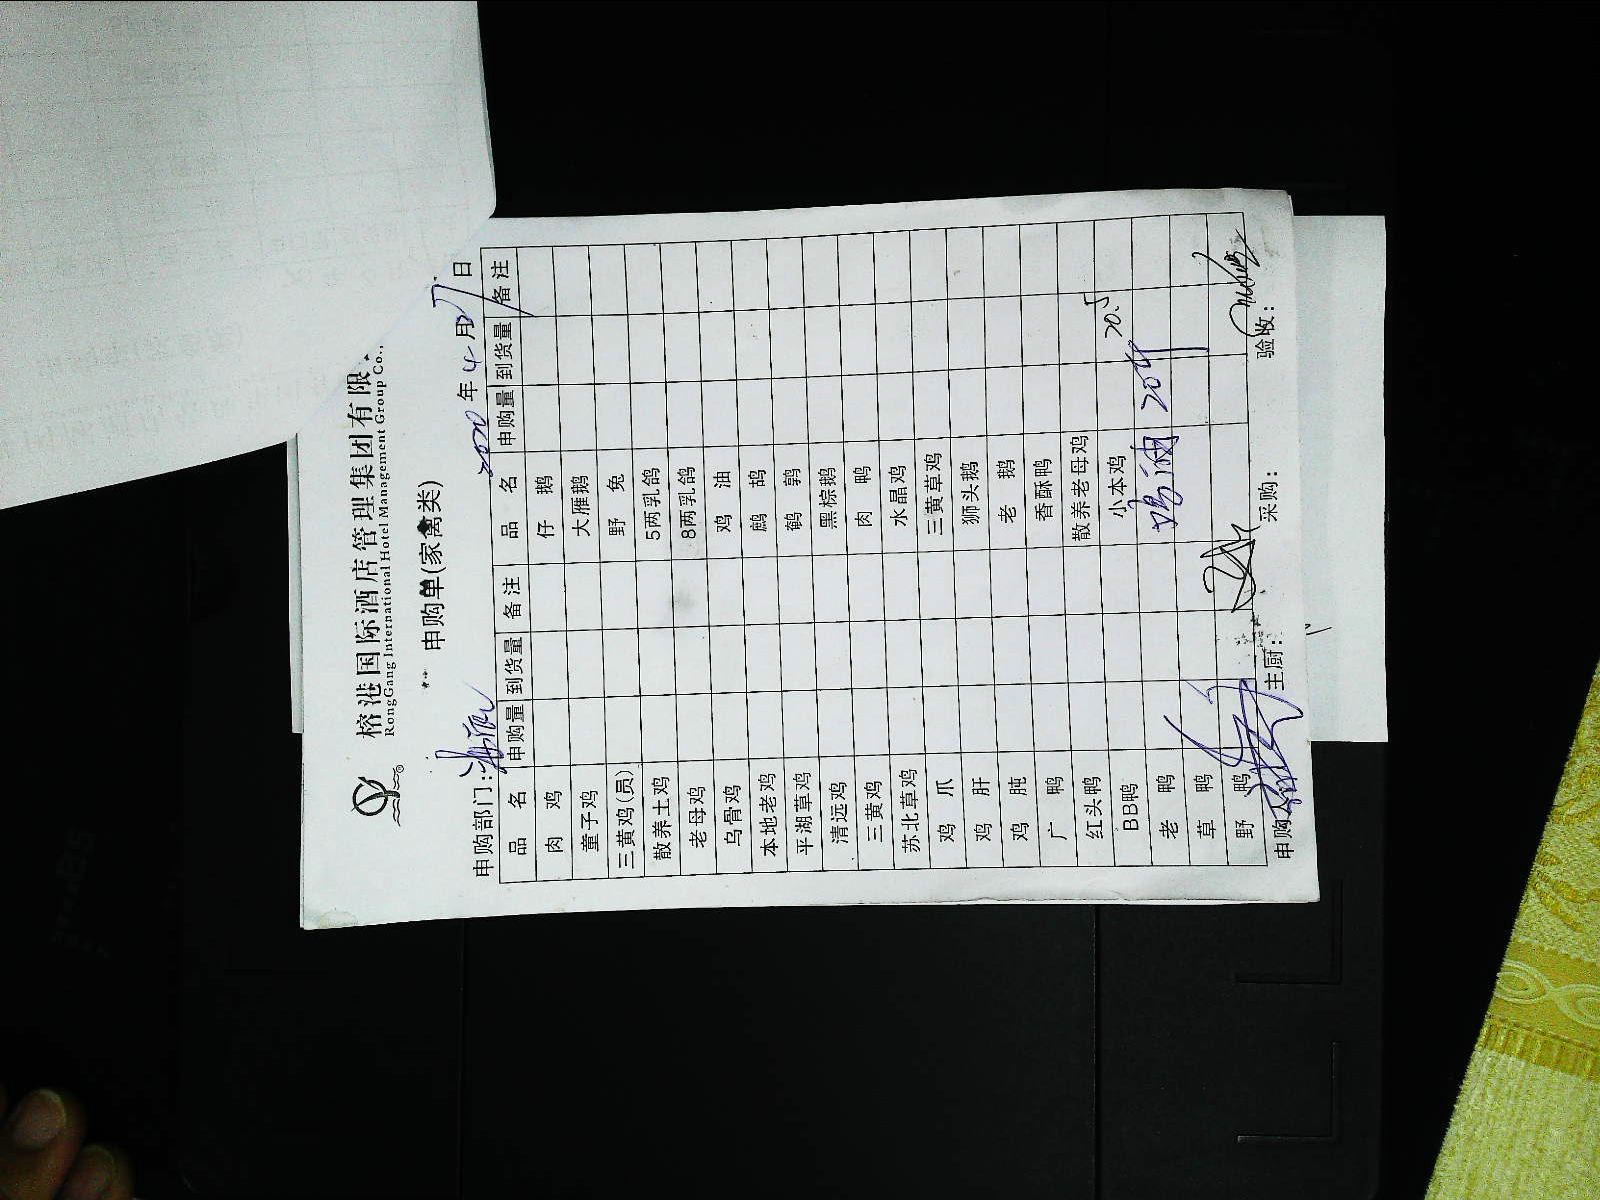 榕港国际酒店管理集团有限
RongGang International Hotel Management Group Co.,
申购单(家禽类)
申购部门: 2020 年 4 月 27 日
品 名 申购量 到货量 备 注 品 名 申购量 到货量 备 注
肉 鸡 仔 鹅
童子鸡 大雁鹅
三黄鸡(员) 野 兔
散养土鸡 5两乳鸽
老母鸡 8两乳鸽
乌骨鸡 鸡 油
本地老鸡 鹧 鸪
平湖草鸡 鹌 鹑
清远鸡 黑棕鹅
三黄鸡 肉 鸭
苏北草鸡 水晶鸡
鸡 爪 三黄草鸡
鸡 肝 狮头鹅
鸡 肫 老 鹅
广 鸭 香酥鸭
红头鸭 散养老母鸡
BB鸭 小本鸡 20.5
老 鸭 鸡油 20斤
草 鸭
野 鸭
申购人 主厨: 采购: 验收: